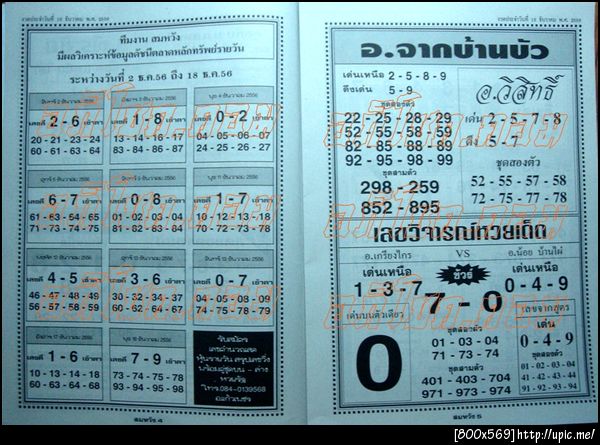 งวดประจำวันที่ 16 ธันวาคม พ.ศ. 2556
ทีมงาน สมหวัง
มีผลวิเคราะห์ข้อมูลดัชนีตลาดหลักทรัพย์รายวัน
ระหว่างวันที่ 2 ธ.ค56 ถึง 18 ธ.ค56
จันทร์ 2 ธันวาคม 2556
เลขดี 2-6 เข้าตา
20 - 21 - 23 - 24
60 - 61 - 63 - 64
อังคาร 3 ธันวาคม 2556
เลขดี 1-8 เข้าตา
13 - 14 - 16 - 17
83 - 84 - 86 - 87
พุธ 4 ธันวาคม 2556
เลขดี 0-2 เข้าตา
04 - 05 - 06 - 07
24 - 25 - 26 - 27
เลขดี 6-7 เข้าตา
61 - 63 - 64 - 65
71 - 73 - 74 - 75
เลขดี 0-8 เข้าตา
01 - 02 - 03 - 04
81 - 82 - 83 - 84
พุธ 11 ธันวาคม 2556
เลขดี 1-7 เข้าตา
17 - 18 - 19 - 10
77 - 78 - 79 - 70
เลขดี 4-5 เข้าตา
46 - 47 - 48 - 49
56 - 57 - 58 - 59
เลขดี 3-6 เข้าตา
31 - 32 - 33 - 34
61 - 62 - 63 - 64
เลขดี 0-7 เข้าตา
04 - 05 - 08 - 09
74 - 75 - 78 - 79
เลขดี 1-6 เข้าตา
10 - 13 - 14 - 18
60 - 63 - 64 - 68
เลขดี 7-9 เข้าตา
73 - 74 - 75 - 78
93 - 94 - 95 - 98
รับสมัคร
โทร 084-0139568
สมหวัง 4
งวดประจำวันที่ 16 ธันวาคม พ.ศ. 2556
อ.จากบ้านบัว
เด่นเหนือ 2 - 5 - 8 - 9
ดึงเด่น 5 - 9
ชุดสองตัว
22 - 25 - 28 - 29
52 - 55 - 58 - 59
82 - 85 - 88 - 89
92 - 95 - 98 - 99
ชุดสามตัว
298 - 259
852 - 895
อ.วิสิทธิ์
เด่น 2 - 5 - 7 - 8
ดึง 5 - 7
ชุดสองตัว
52 - 55 - 57 - 58
72 - 75 - 77 - 78
เลขวิจารณ์หวยเด็ด
อ.เกรียงไกร VS อ.น้อย บ้านไผ่
เด่นเหนือ
1-3-7
ชัวร์
7-0
เด่นเหนือ
0-4-9
เด่นบนตัวเดียว
0
ชุดสองตัว
01 - 03 - 04
71 - 73 - 74
ชุดสามตัว
401 - 403 - 704
971 - 973 - 974
เลขจากสูตร
เด่น
0-4-9
ชุดสองตัว
01 - 02 - 03 - 04
41 - 42 - 43 - 44
91 - 92 - 93 - 94
สมหวัง 5
[800x569]http://upic.me/